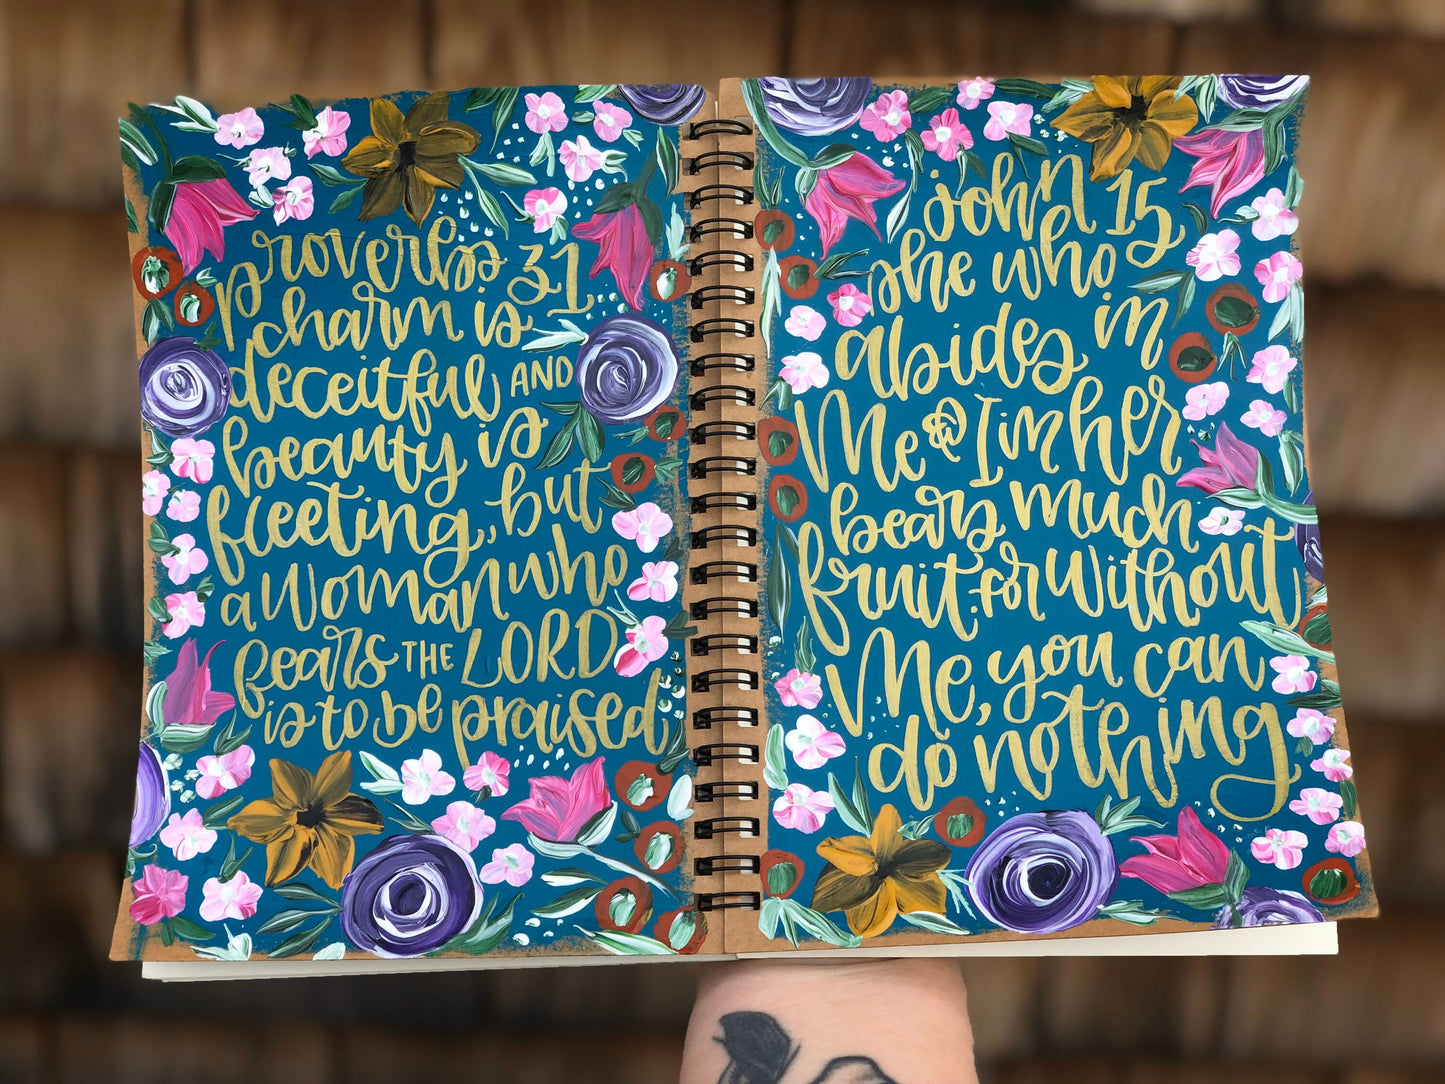 proverbs 31
charm is
deceitful AND
beauty is
fleeting, but
a woman who
fears THE LORD
is to be praised
john 15
she who
abides in
Me & I in her
bears much
fruit. for without
Me, you can
do nothing